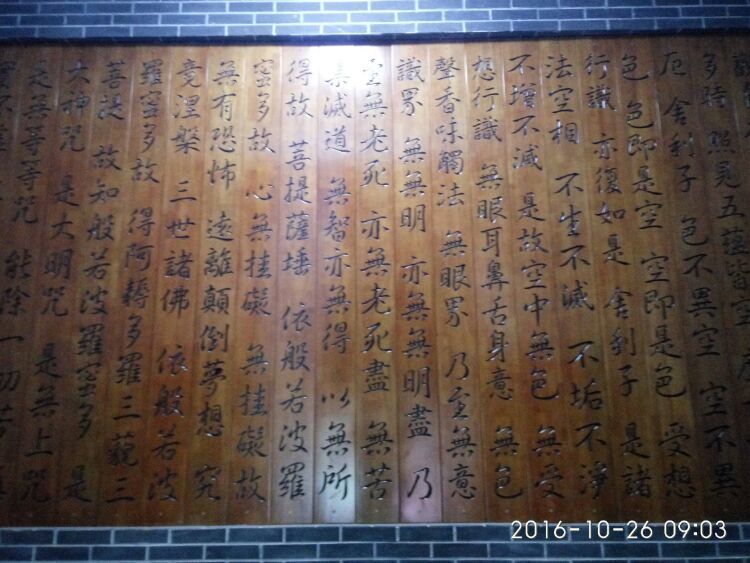 多時 照見五蘊皆空
厄 舍利子 色不異空 空不異
色 色即是空 空即是色 受想
行識 亦復如是 舍利子 是諸
法空相 不生不滅 不垢不淨
不增不減 是故空中無色 無受
想行識 無眼耳鼻舌身意 無色
聲香味觸法 無眼界 乃至無意
識界 無無明 亦無無明盡 乃
至無老死 亦無老死盡 無苦
集滅道 無智亦無得 以無所
得故 菩提薩埵 依般若波羅
蜜多故 心無挂礙 無挂礙故
無有恐怖 遠離顛倒夢想 究
竟涅槃 三世諸佛 依般若波
羅蜜多故 得阿耨多羅三藐三
菩提 故知般若波羅蜜多 是
大神咒 是大明咒 是無上咒
是無等等咒 能除一切苦
2016-10-26 09:03